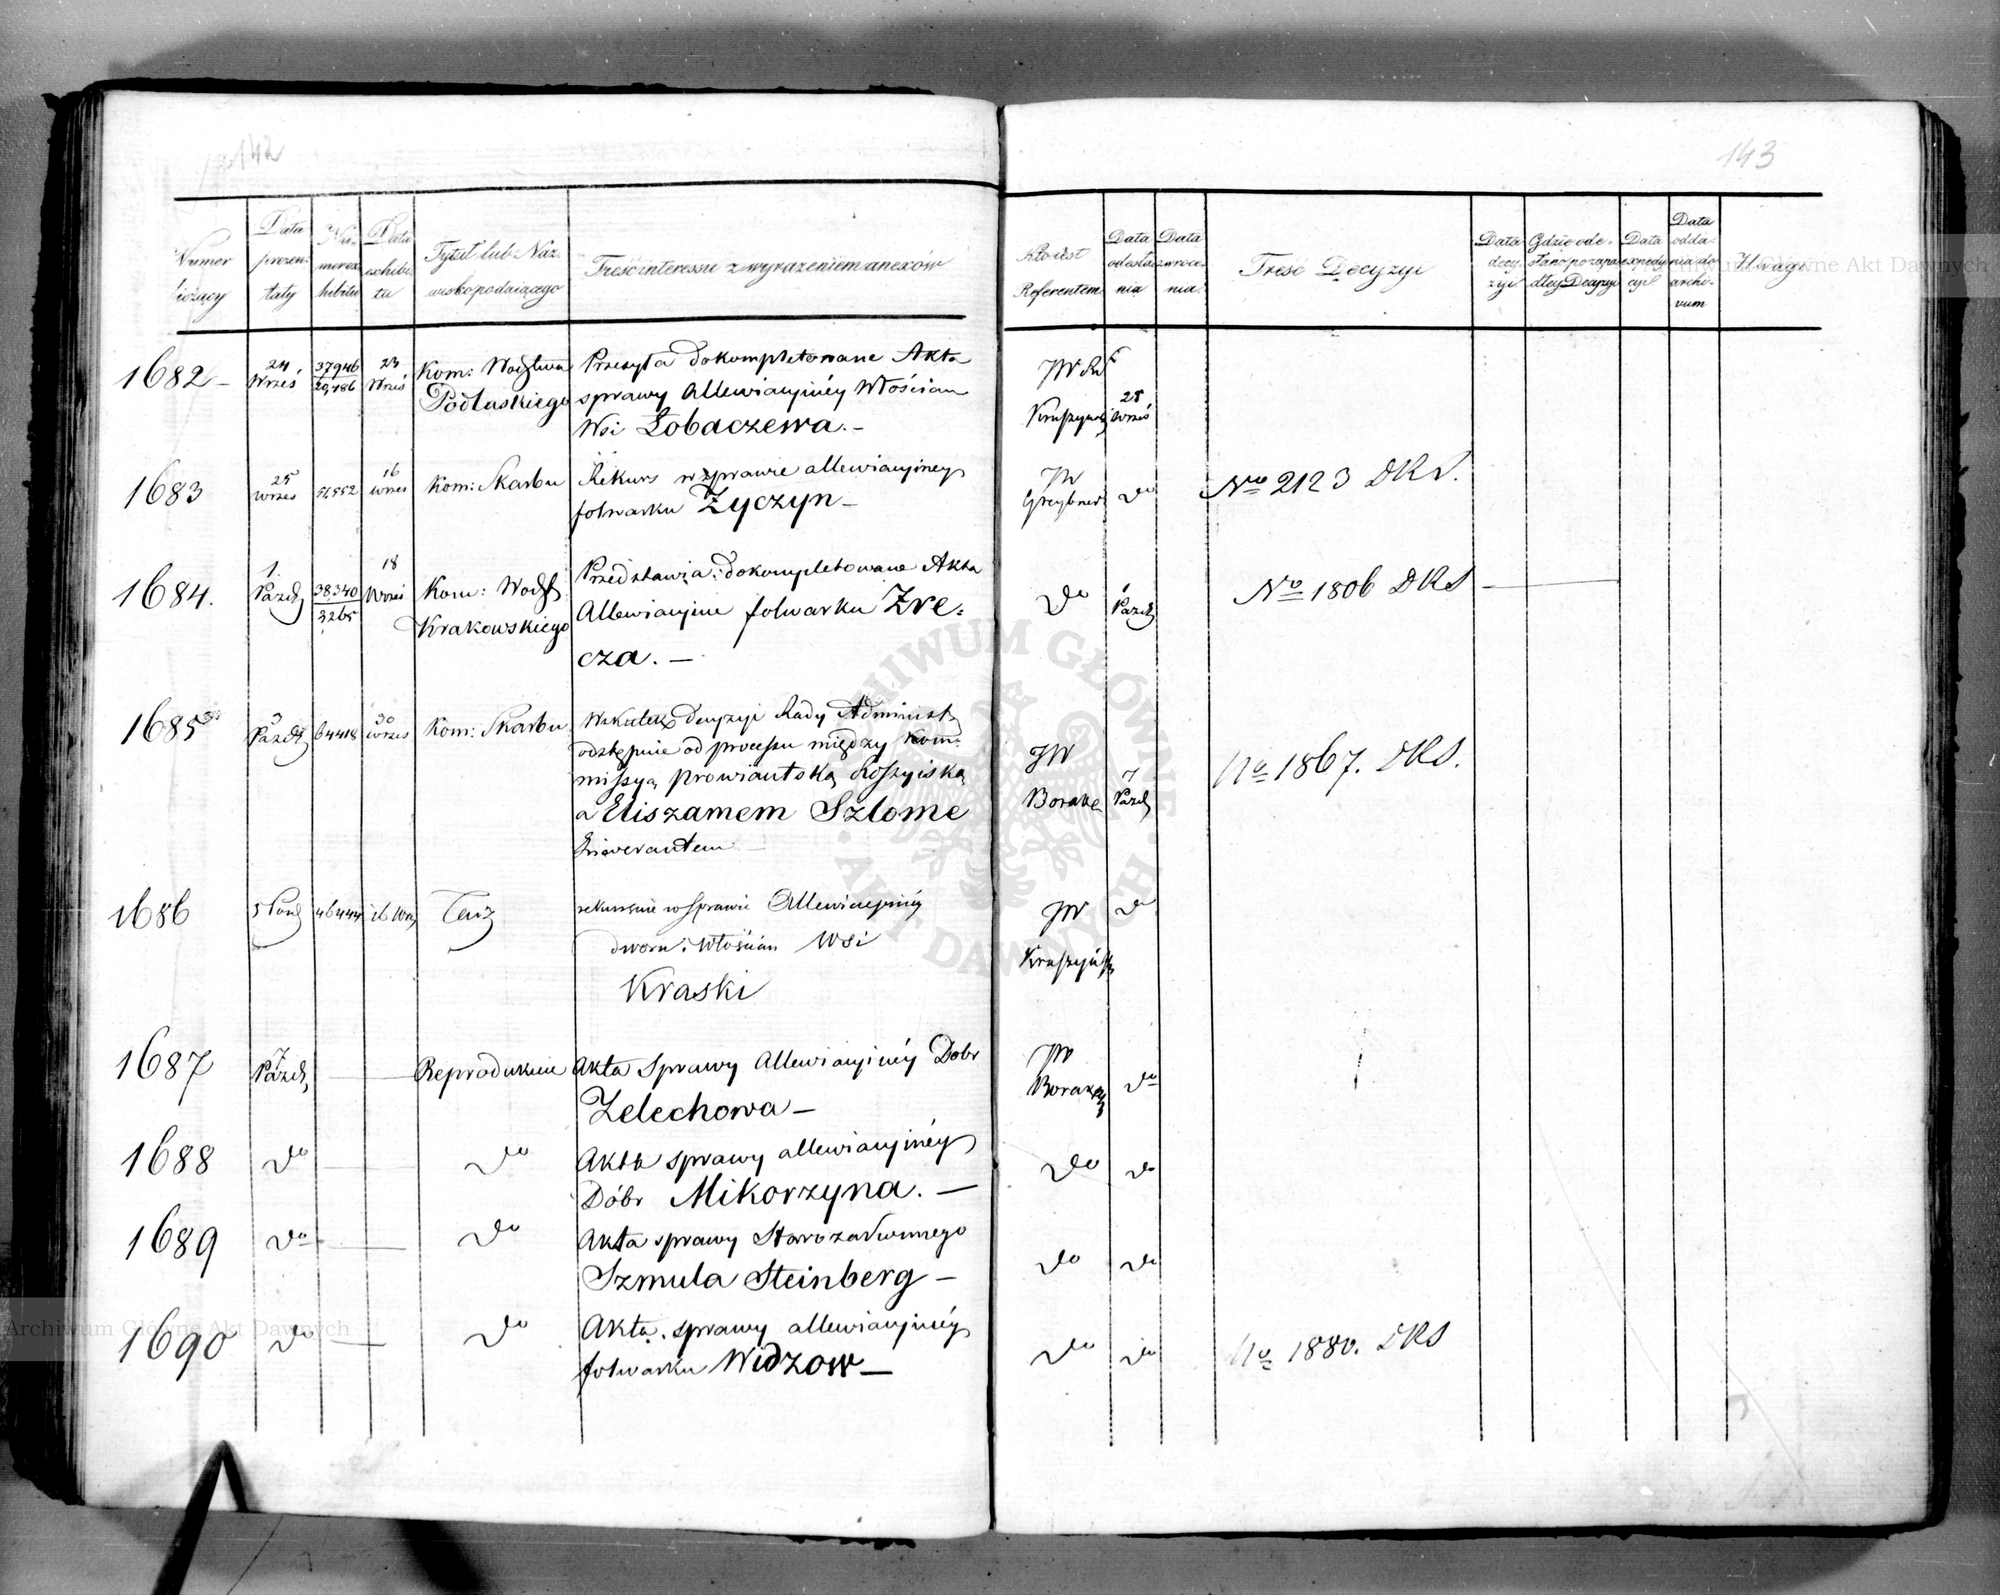 142
143
Numer bieżący
Data prezentaty
Numer exhibitu
Data exhibitu
Tytuł lub Nazwisko podaiącego
Treść interessu z wyrażeniem anexów
Kto iest Referentem
Data odesłania
Data zwrócenia
Treść Decyzyi
Data decyzyi
Gdzie odesłano po zapadłey Decyzyi
Data expedycyi
Data oddania do archivum
Uwagi
1682 –
24 Wrześ
37946
29,186
23 Wrześ
Kom: Wodztwa
Podlaskiego
Przesyła dokompletowane Akta
sprawy allewiacyinéy Włościan
Wsi Łobaczewa. –
JW
28 Wrześ
1683
25 Wrześ
51552
16 Wrześ
Kom: Skarbu
Rekurs w sprawie allewiacyiney
folwarku Życzyn –
JW
do
No 2123 DKS.
1684.
1. Paźdź
38340
3265
18 Wrześ
Kom: Wodz.
Krakowskiego
Przedstawia: dokompletowane Akta
Allewiacyine folwarku Zre=
cza. –
do
1 Paźdź
No 1806 DKS
1685
5 Paźdź
64418
30 Wrześ
Kom: Skarbu
Wskutek decyzyi Rady Administ.
odstępuie od processu między Kom=
missyą prowiantską Rossyiską
a Eliszamem Szlome
liwerantem
JW
7 Paźdź
No 1867. DKS.
1686
46444
Taż
rekursuie w sprawie Allewiacyinéy
dworu i Włościan Wsi
Kraski
JW
do
1687
7 Paźdź
Reprodukuie
Akta Sprawy Allewiacyinéy Dobr
Zelechowa –
JW
do
1688
do
do
Akta sprawy allewiacyinéy
Dóbr Mikorzyna. –
do
do
1689
do
do
Akta sprawy Starozakonnego
Szmula Steinberg –
do
do
1690
do
do
Akta sprawy allewiacyinéy
folwarku Widzow –
do
do
No 1880. DKS
Archiwum Główne Akt Dawnych
Archiwum Główne Akt Dawnych
ARCHIWUM GŁÓWNE AKT DAWNYCH